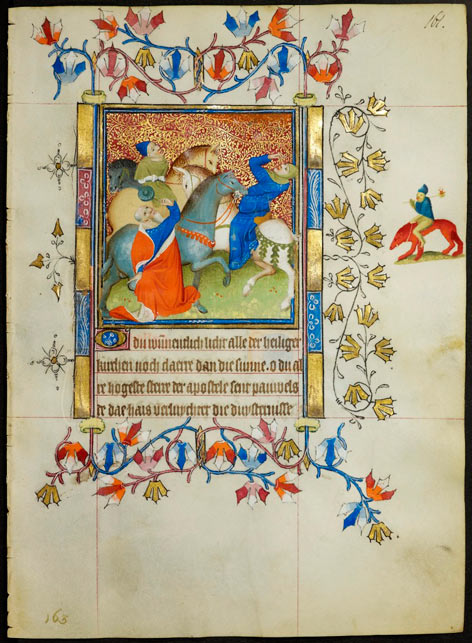 161.
O du wunnentlich licht alle der heiliger
kirchen noch claerre dan die sunne. o du al
re hogeste sterre der apostele sent pauwels
de dae hais verluychtet die duysternisse
163